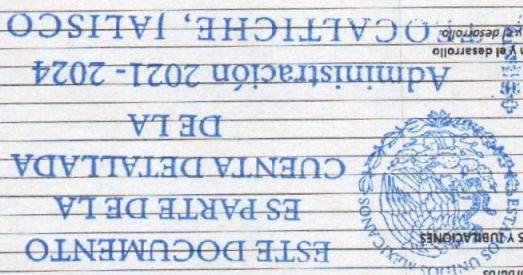 ESTE DOCUMENTO
ES PARTE DE LA
CUENTA DETALLADA
DE LA
Administración 2021 - 2024
TEOCALTICHE, JALISCO
ESTADOS UNIDOS MEXICANOS
S Y JUBILACIONES
el desarrollo
y el desarrollo